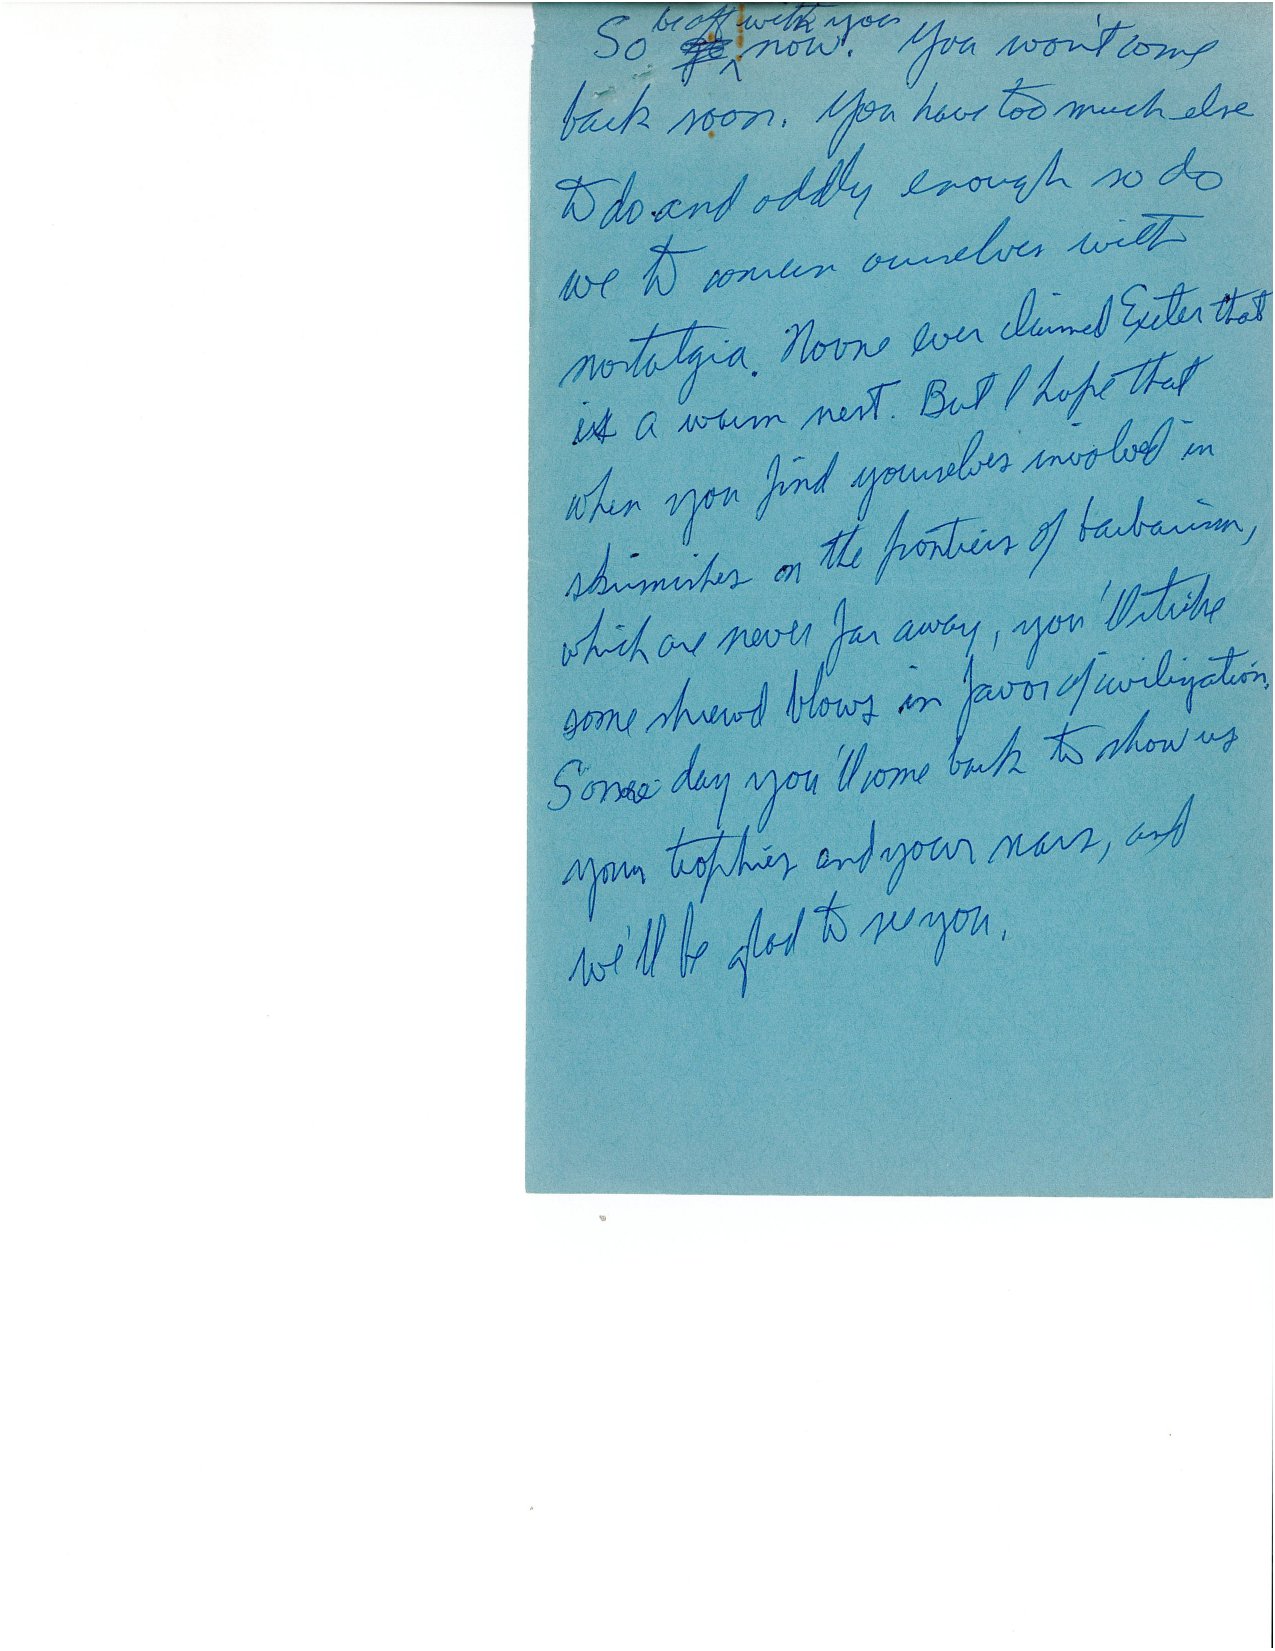 So be off with you now. You won't come
back soon. You have too much else
to do and oddly enough so do
we to concern ourselves with
nostalgia. No one ever claimed Exeter that
is a warm nest. But I hope that
when you find yourselves involved in
skirmishes on the frontiers of barbarism,
which are never far away, you'll strike
some shrewd blows in favor of civilization.
Some day you'll come back to show us
your trophies and your scars, and
we'll be glad to see you.